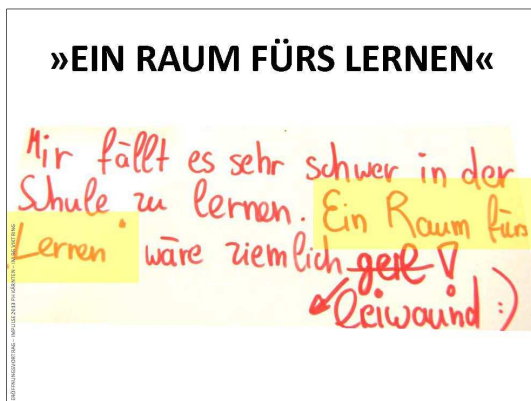 »EIN RAUM FÜRS LERNEN«
Mir fällt es sehr schwer in der
Schule zu lernen. Ein Raum fürs
Lernen wäre ziemlich geil!
leiwaund :)